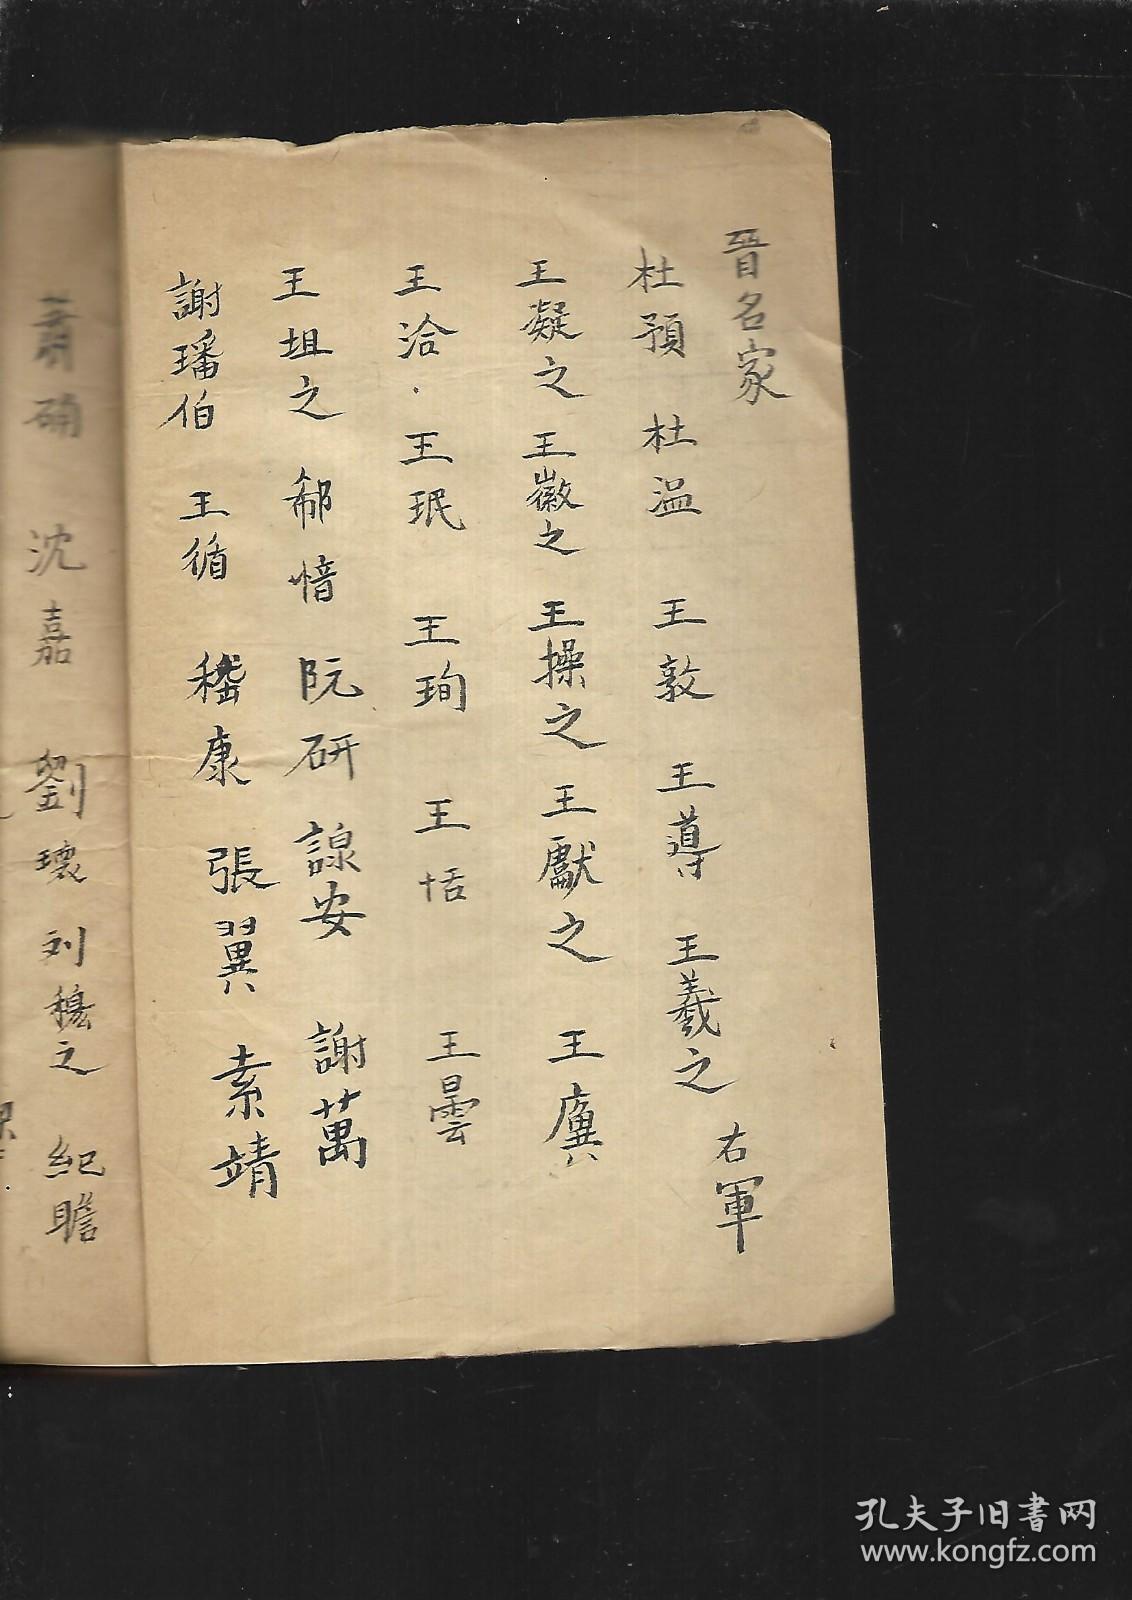 晉名家
杜預 杜温 王敦 王導 王羲之 右軍
王凝之 王徽之 王操之 王獻之 王廙
王洽 · 王珉 王珣 王恬 王曇
王坦之 郗愔 阮研 謝安 謝萬
謝璠伯 王循 嵇康 張翼 索靖
蕭确 沈嘉 劉瓌 刘穆之 紀瞻
孔夫子旧书网
www.kongfz.com